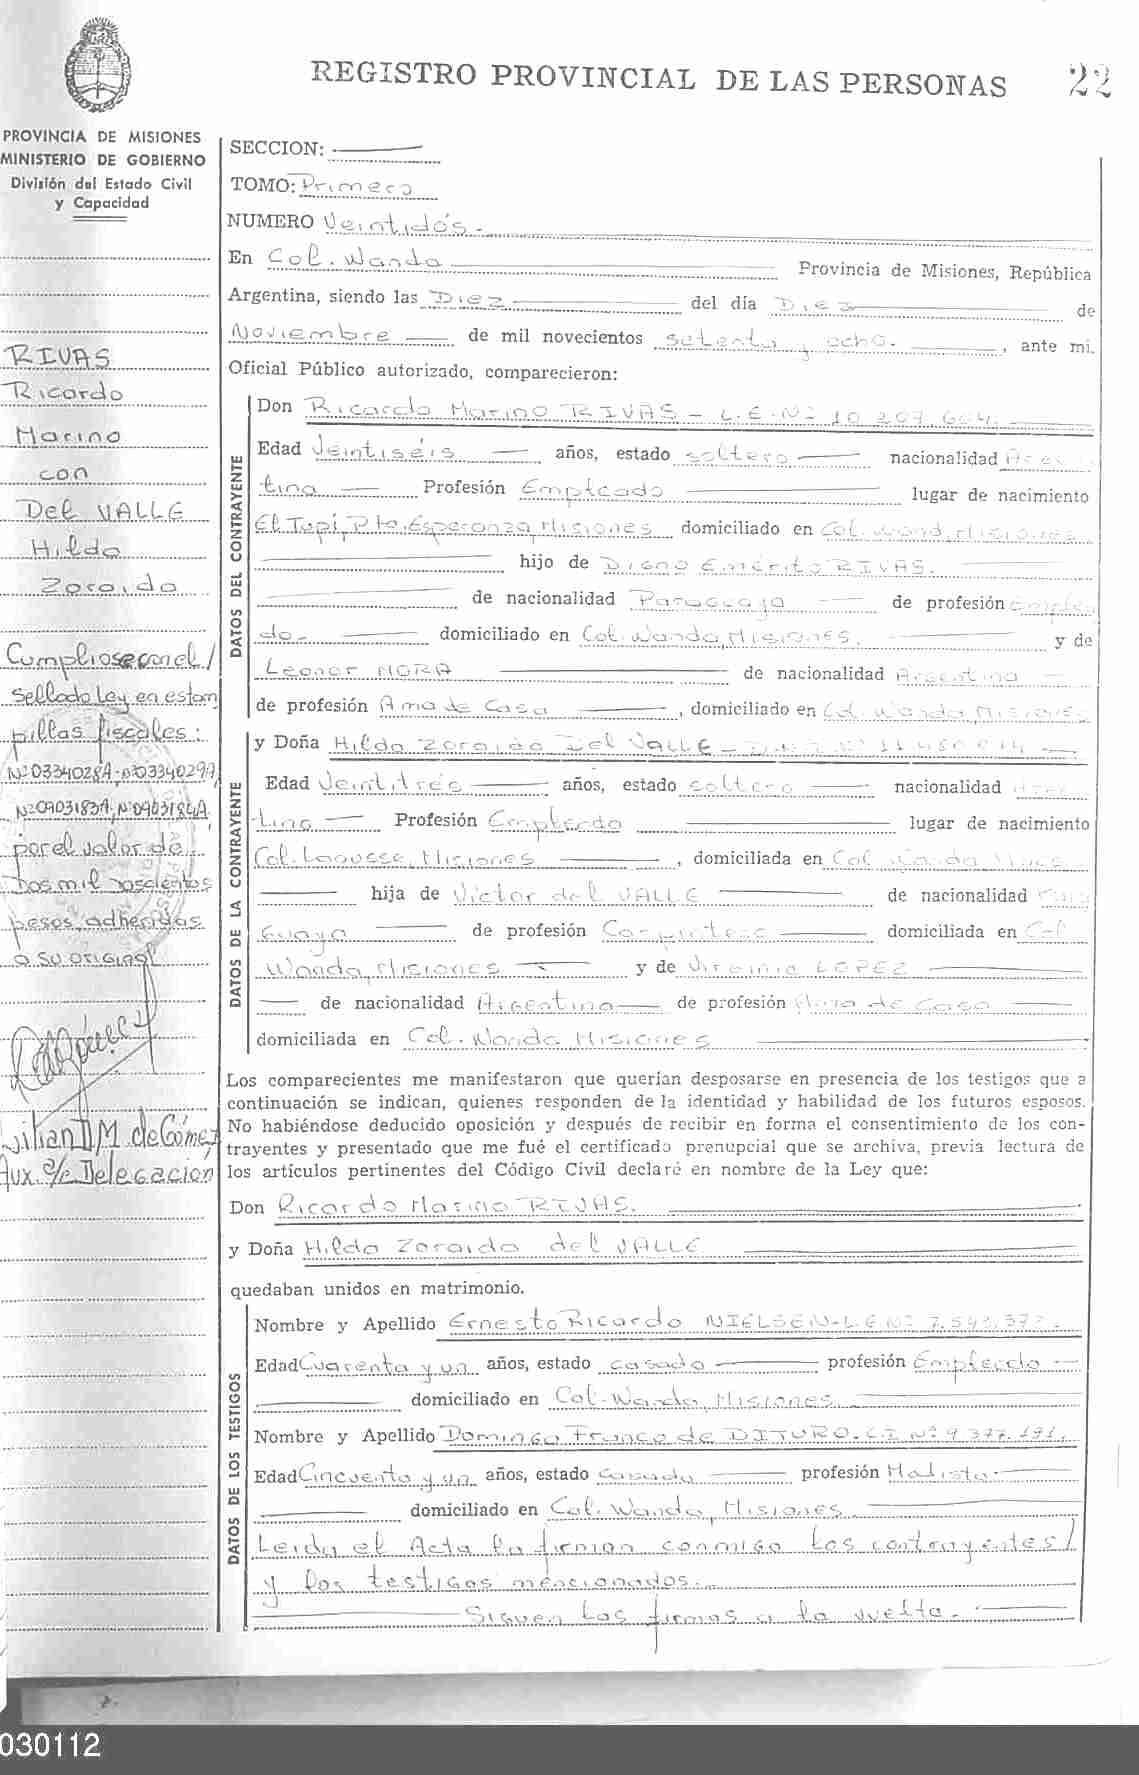 REGISTRO PROVINCIAL DE LAS PERSONAS 22
PROVINCIA DE MISIONES
MINISTERIO DE GOBIERNO
División del Estado Civil
y Capacidad
RIVAS
Ricardo
Marino
con
Del VALLE
Hilda
Zoraida
Cumpliose con el /
Sellado Ley en estam
pillas fiscales:
Nº 0334028A-Nº0334029A
Nº0903183A, Nº0903184A
por el valor de
Dos mil doscientos
pesos adheridas
a su original
Lilian M. de Gómez
Aux. e/c Delegación
SECCION:
TOMO: Primero
NUMERO Veintidós.-
En Col. Wanda Provincia de Misiones, República
Argentina, siendo las Diez del día Diez de
Noviembre de mil novecientos setenta y ocho.- , ante mi.
Oficial Público autorizado, comparecieron:
DATOS DEL CONTRAYENTE
Don Ricardo Marino RIVAS - L.E.Nº 10.207.664.
Edad Veintiséis años, estado soltero nacionalidad Argen
tina Profesión Empleado lugar de nacimiento
El Tapi, Pto. Esperanza Misiones domiciliado en Col. Wand. Misiones
hijo de Digno Emérito RIVAS.
de nacionalidad Paraguaya de profesión Emplea
do- domiciliado en Col. Wanda, Misiones. y de
Leonor MORA de nacionalidad Argentina
de profesión Ama de Casa , domiciliado en Col. Wanda, Misiones
DATOS DE LA CONTRAYENTE
y Doña Hilda Zoraida Del VALLE - D.N.I.Nº
Edad Veintitrés años, estado soltera nacionalidad Argen
tina Profesión Empleada lugar de nacimiento
Col. Laousse, Misiones , domiciliada en Col. Wanda Mnes
hija de Victor del VALLE de nacionalidad Para
guaya de profesión Carpintero domiciliada en Col.
Wanda, Misiones y de Virginia LOPEZ
de nacionalidad Argentina de profesión Ama de Casa
domiciliada en Col. Wanda Misiones
Los comparecientes me manifestaron que querían desposarse en presencia de los testigos que a
continuación se indican, quienes responden de la identidad y habilidad de los futuros esposos.
No habiéndose deducido oposición y después de recibir en forma el consentimiento de los con-
trayentes y presentado que me fué el certificado prenupcial que se archiva, previa lectura de
los artículos pertinentes del Código Civil declaré en nombre de la Ley que:
Don Ricardo Marino RIVAS.
y Doña Hilda Zoraida del VALLE
quedaban unidos en matrimonio.
DATOS DE LOS TESTIGOS
Nombre y Apellido Ernesto Ricardo NIELSEN-L.E.Nº 7.543.372.
Edad Cuarenta y un años, estado casado profesión Empleado
domiciliado en Col. Wanda, Misiones
Nombre y Apellido Dominga Franco de DITURO. C.I. Nº 9.377.191.
Edad Cincuenta y un años, estado Casada profesión Modista.
domiciliado en Col. Wanda, Misiones
Leida el Acta la firman conmigo los contrayentes/
y los testigos mencionados.-
Siguen las firmas a la vuelta.-
030112